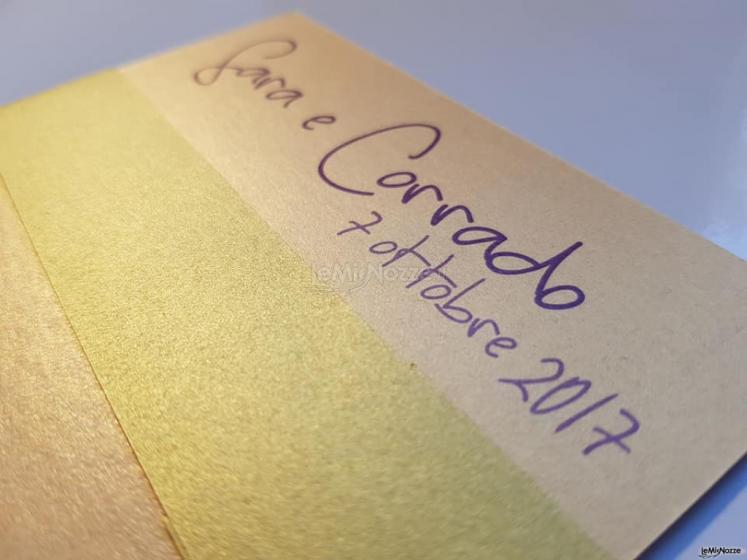 Sara e
Corrado
7 ottobre 2017
leMieNozze.it
leMieNozze